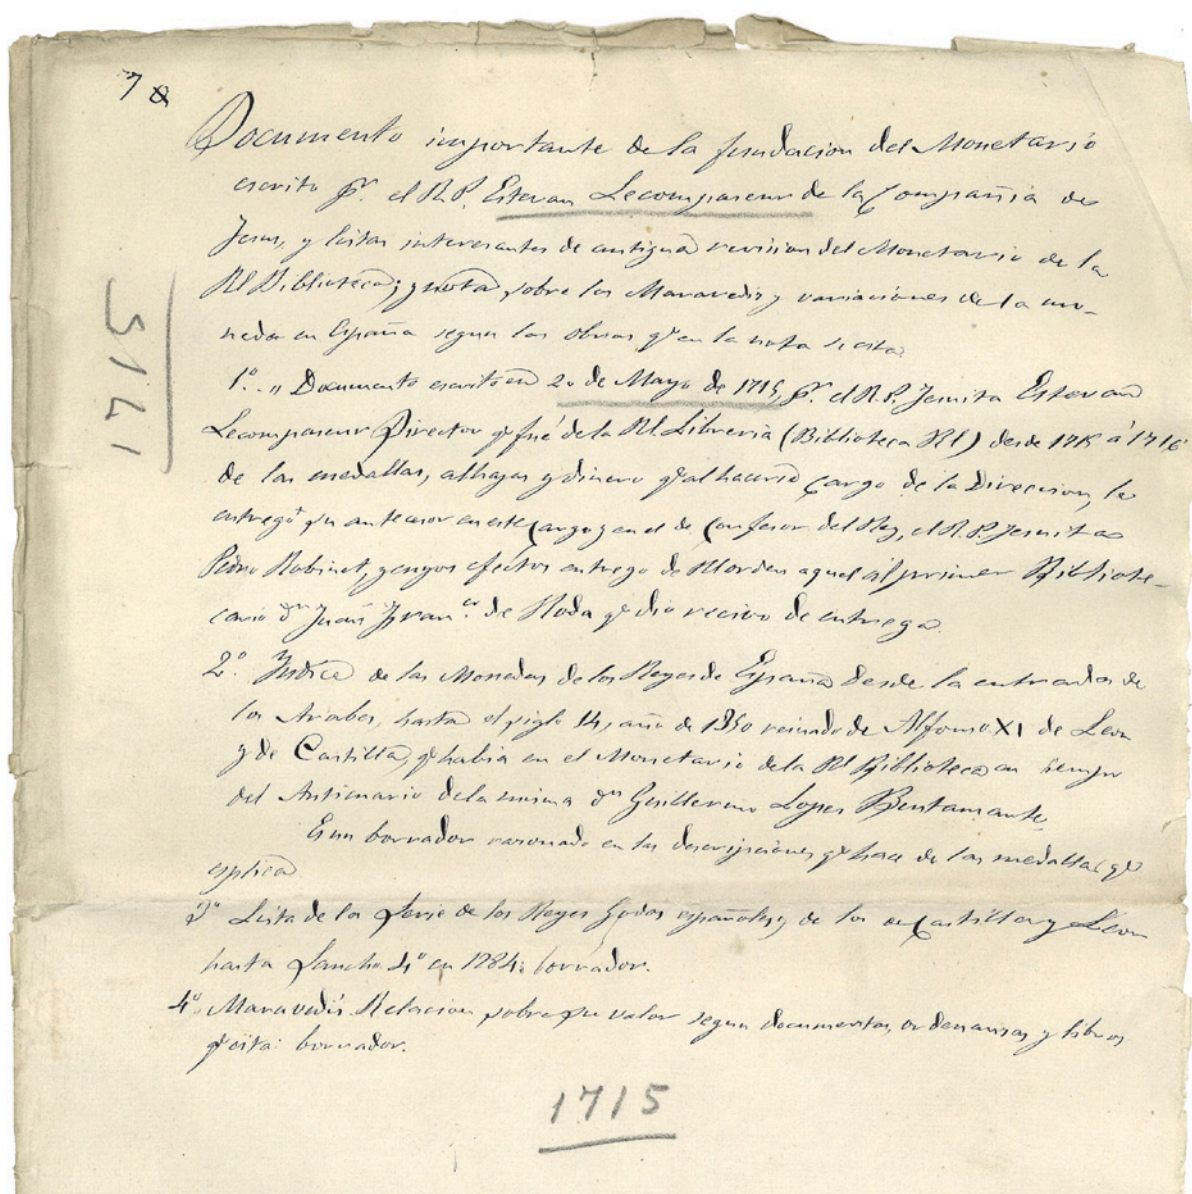 7
Documento importante de la fundacion del Monetario
escrito pr. el R.P. Estevan Lecompaseur de la Compañia de
Jesus, y listas interesantes de antigua revision del Monetario de la
Rl Biblioteca; y nota sobre los Maravedis y variaciones de la mo-
neda en España segun las obras qe en la nota se cita.
1º. „ Documento escrito en 20 de Mayo de 1715, pr. el R.P. Jesuita Estevan
Lecompaseur Director qe fué de la Rl. Libreria (Biblioteca Rl) desde 1715 á 1716
de las medallas, alhajas y dinero qe al hacerse cargo de la Direccion, le
entregó su antecesor en este cargo y en el de Confesor del Rey, el R.P. Jesuita
Pedro Robinet, y cuyos efectos entrego de Rl orden aquel al primer Bibliote-
cario dn Juan Franco. de Roda qe dio recivo de entrega.
2º. Indice de las Monedas de los Reyes de España desde la entrada de
los Arabes, hasta el siglo 14, año de 1350 reinado de Alfonso XI de Leon
y de Castilla, qe habia en el Monetario de la Rl Biblioteca en tiempo
del Anticuario de la misma dn Guillermo Lopez Bustamante.
Es un borrador razonado en las descripciones qe hace de las medallas qe
esplica
3º Lista de la Serie de los Reyes Godos españoles, y de los de Castilla y Leon
hasta Sancho 4º en 1284: borrador.
4º. Maravedís. Relacion sobre su valor segun documentos, ordenanzas y libros
qe cita: borrador.
1715
3141